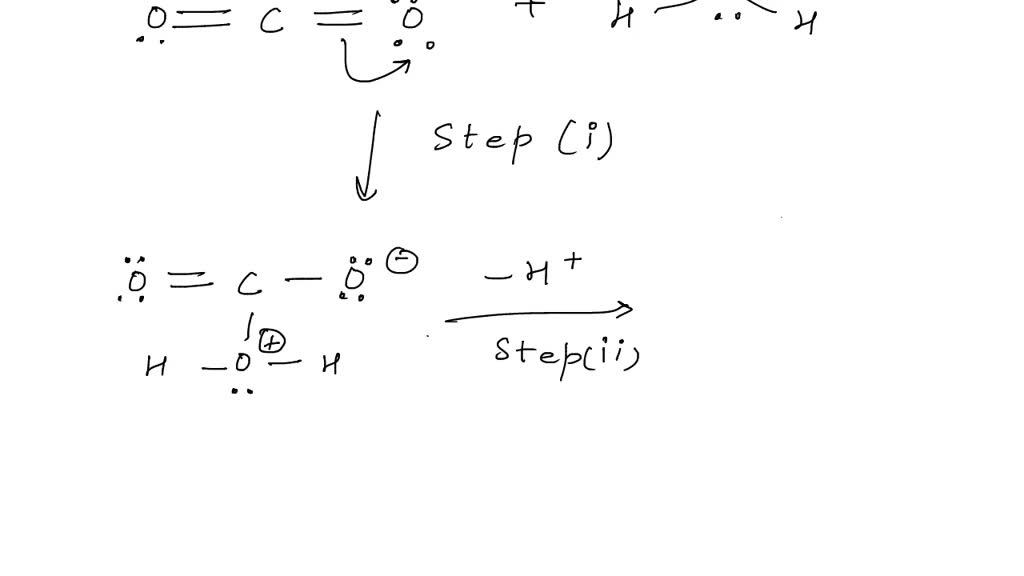 O = C = O + H H
Step (i)
O = C - O ⊖ - H +
⊕
H - O - H Step (ii)